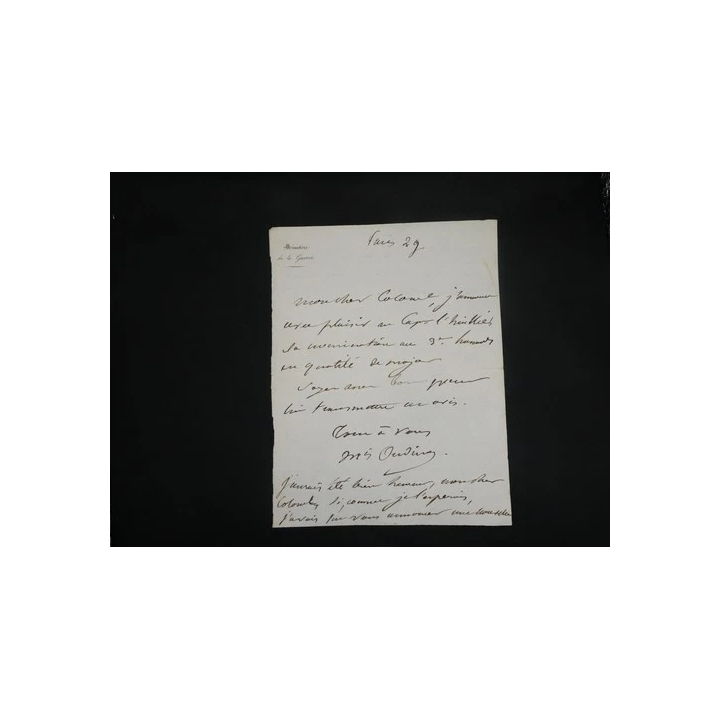 Ministère
de la Guerre
Paris 29.
mon cher Colonel, j'annonce
avec plaisir au Cap
sa nomination au 3e hussards
en qualité de major
Soyez assez bon pour
lui transmettre cet avis.
Tout à vous
Mis Oudinot.
j'aurais été bien heureux, mon cher
Colonel, si, comme je l'espérais,
j'avais pu vous annoncer une